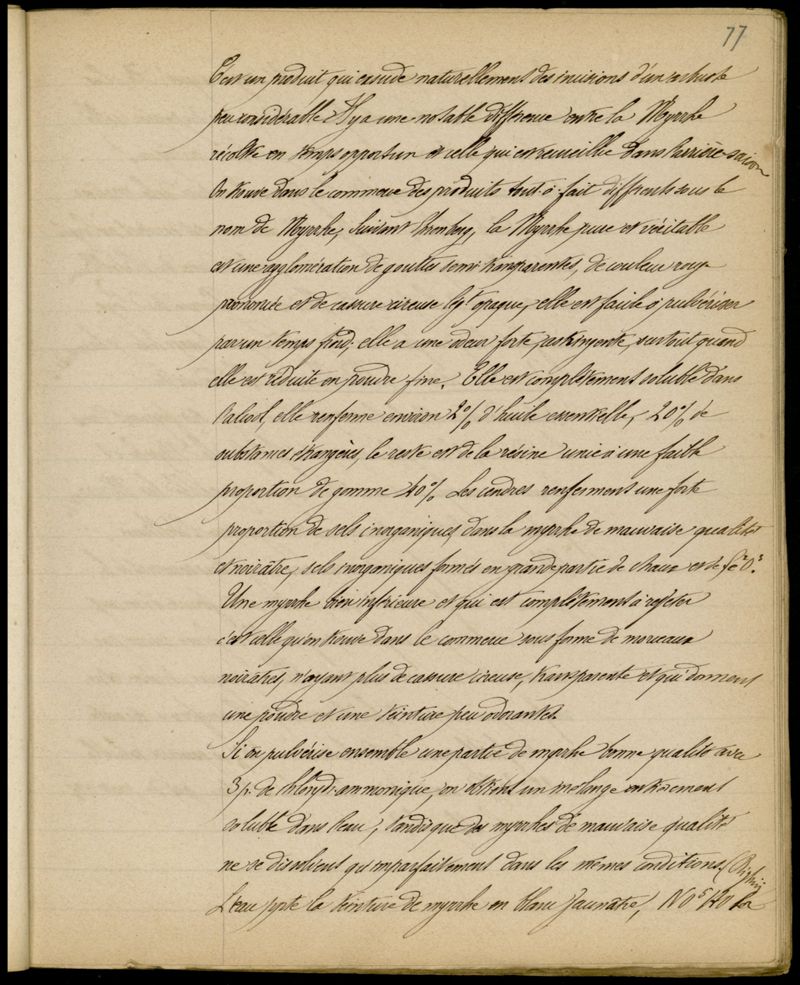 77
C'est un produit qui exsude naturellement des incisions d'un arbuste
peu considérable. Il y a une notable différence entre la Myrrhe
récoltée en temps opportun et celle qui est recueillie dans l'arrière-saison
On trouve dans le commerce des produits tout à fait différents sous le
nom de Myrrhe, Suivant la Myrrhe pure et véritable
est une agglomération de gouttes semi transparentes, de couleur rouge
prononcée et de cassure cireuse et opaque, elle est facile à pulvériser
par un temps froid; elle a une odeur forte, astringente, surtout quand
elle est réduite en poudre fine. Elle est complètement soluble dans
l'alcool, elle renferme environ 2% d'huile essentielle, 20% de
substances étrangères, le reste est de la résine unie à une faible
proportion de gomme 40% Les cendres renferment une forte
proportion de sels inorganiques dans la myrrhe de mauvaise qualité
et noirâtre, sels inorganiques formés en grande partie de chaux et de Fe²O³.
Une myrrhe bien inférieure et qui est complètement à rejeter
c'est celle qu'on trouve dans le commerce sous forme de morceaux
noirâtres, n'ayant plus de cassure cireuse, transparente et qui donnent
une poudre et une teinture peu odorantes.
Si on pulvérise ensemble une partie de myrrhe bonne qualité avec
3 p. de chloryd. ammonique, on obtient un mélange entièrement
soluble dans l'eau, tandis que des myrrhes de mauvaise qualité
ne se dissolvent qu'imparfaitement dans les mêmes conditions (Righini
L'eau ppte la teinture de myrrhe en blanc jaunâtre, NO⁵HO la